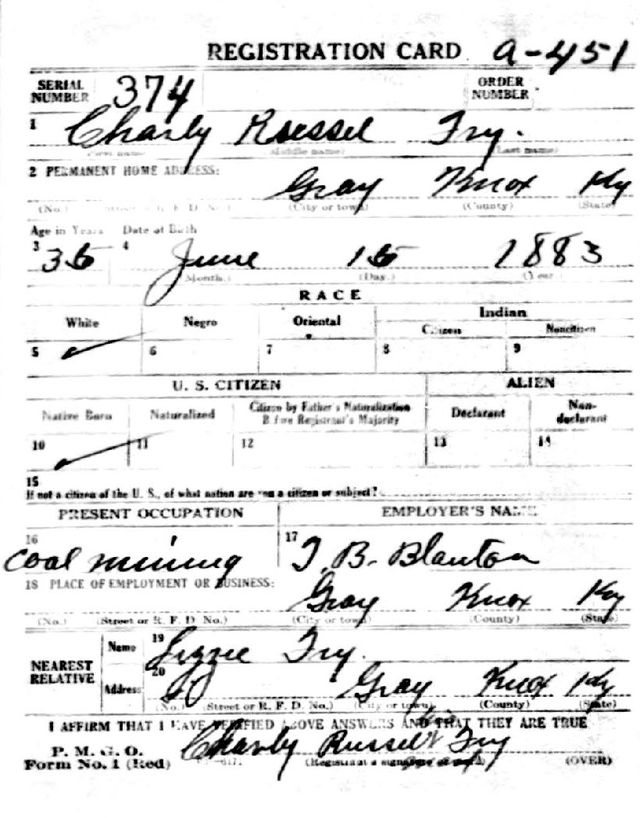 REGISTRATION CARD a-451
SERIAL NUMBER 374 ORDER NUMBER
1 Charly Russel Fry.
(First name) (Middle name) (Last name)
2 PERMANENT HOME ADDRESS: Gray Knox Ky
(No.) (Street or R. F. D. No.) (City or town) (County) (State)
Age in Years Date of Birth
3 36 4 June 16 1883
(Month.) (Day.) (Year.)
RACE
White Negro Oriental Indian
Citizen Noncitizen
5 6 7 8 9
U. S. CITIZEN ALIEN
Native Born Naturalized Citizen by Father's Naturalization Before Registrant's Majority Declarant Non-declarant
10 11 12 13 14
15
If not a citizen of the U. S., of what nation are you a citizen or subject?
PRESENT OCCUPATION EMPLOYER'S NAME
16 coal mining 17 T. B. Blanton
18 PLACE OF EMPLOYMENT OR BUSINESS:
Gray Knox Ky
(No.) (Street or R. F. D. No.) (City or town) (County) (State)
NEAREST RELATIVE
Name 19 Lizzie Fry.
Address 20 Gray Knox Ky
(No.) (Street or R. F. D. No.) (City or town) (County) (State)
I AFFIRM THAT I HAVE VERIFIED ABOVE ANSWERS AND THAT THEY ARE TRUE
P. M. G. O.
Form No. 1 (Red) Charly Russel Fry
(Registrant's signature or mark) (OVER)